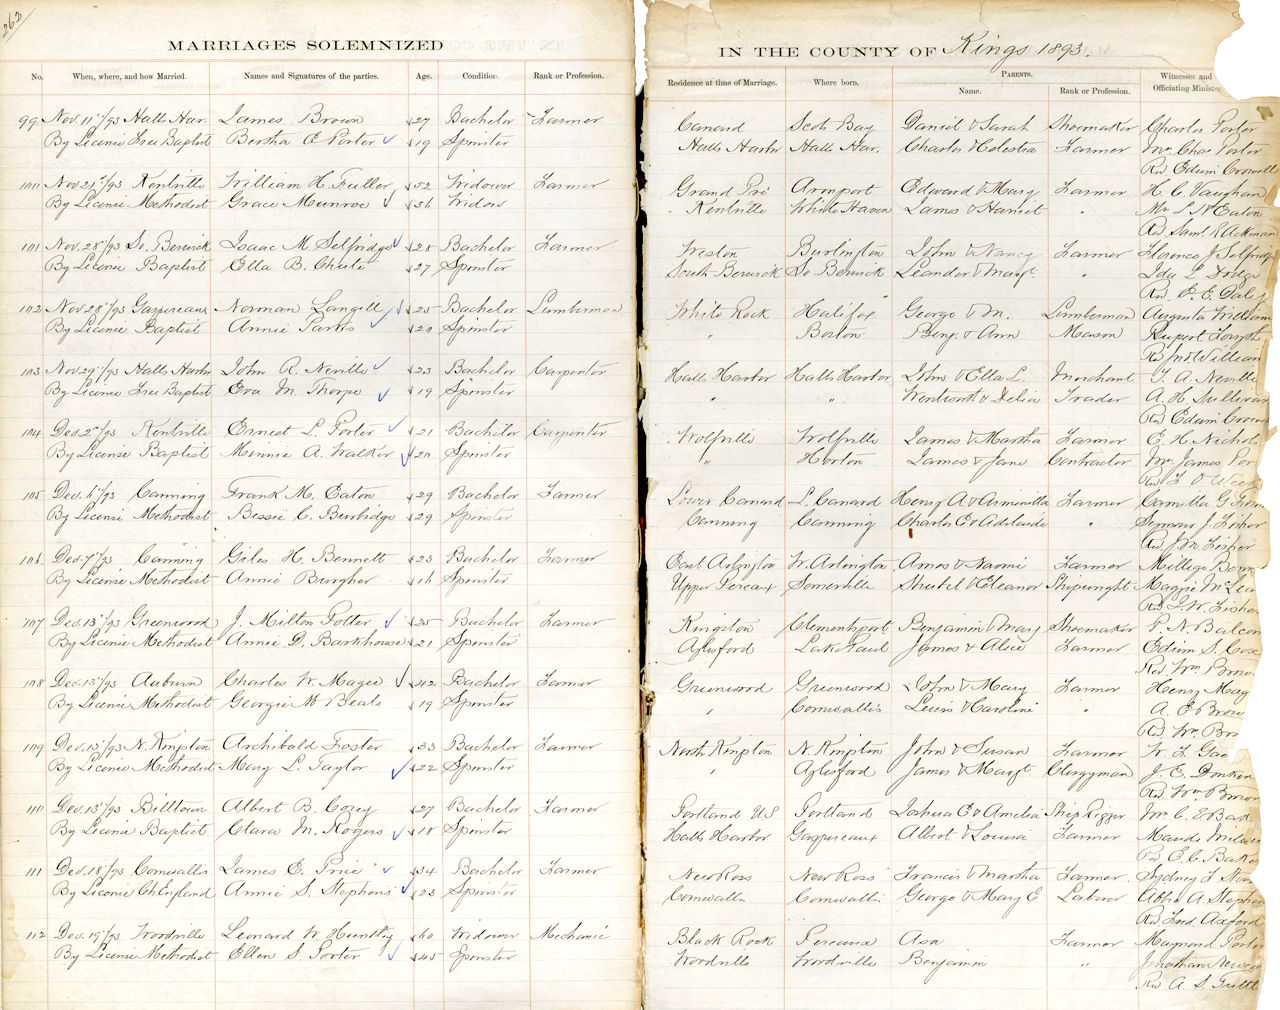 263
MARRIAGES SOLEMNIZED
IN THE COUNTY OF Kings 1893.
No. When, where, and how Married. Names and Signatures of the parties. Age. Condition. Rank or Profession.
Residence at time of Marriage. Where born. PARENTS. Witnesses and
Name. Rank or Profession. Officiating Minister
99 Nov. 11"/93 Halls Har. James Brown 27 Bachelor Farmer
By License Free Baptist Bertha E Porter 19 Spinster
Canard Scots Bay Daniel & Sarah Shoemaker Charles Porter
Halls Harbor Halls Har. Charles & Celestia Farmer Mrs Chas Porter
Rev Edwin Crowell
100 Nov 21"/93 Kentville William H. Fuller 52 Widower Farmer
By License Methodist Grace Munroe 36 Widow
Grand Pré Avonport Edward & Mary Farmer H. C. Vaughan
Kentville White Haven James & Harriet " Mrs L N Eaton
Rev. Saml R Ackman
101 Nov. 28"/93 So. Berwick Isaac M. Selfridge 28 Bachelor Farmer
By License Baptist Ella B. Chute 27 Spinster
Weston Burlington John & Nancy Farmer Florence J Selfridg
South Berwick So Berwick Leander & Margt "
Rev. E. E. Daley
102 Nov 28"/93 Gaspereaux Norman Langill 25 Bachelor Lumberman
By License Baptist Annie Parks 20 Spinster
White Rock Halifax George & M. Lumberman Augusta William
" Boston Benj. & Ann Mason Rupert Forsyth
Rev Jno. William
103 Nov 29"/93 Halls Harbor John A. Neville 23 Bachelor Carpenter
By License Free Baptist Eva M. Thorpe 19 Spinster
Halls Harbor Halls Harbor John & Ella L. Merchant T. A. Neville
" " Wentworth & Delia Trader A. H. Sullivan
Rev Edwin Crowe
104 Dec. 2"/93 Kentville Ernest L. Porter 21 Bachelor Carpenter
By License Baptist Minnie A. Walker 20 Spinster
Wolfville Wolfville James & Martha Farmer C. H. Nichol
" Horton James & Jane Contractor Mrs James Por
105 Dec. 6"/93 Canning Frank M. Eaton 29 Bachelor Farmer
By License Methodist Bessie C. Burbidge 29 Spinster
Lower Canard L. Canard Henry A & Arminilla Farmer Camilla G
Canning Canning Charles E & Adelaide " Seymour J. Fisher
Rev J M Fisher
106 Dec. 7"/93 Canning Giles H. Bennett 23 Bachelor Farmer
By License Methodist Annie Burgher 16 Spinster
East Arlington W. Arlington Amos & Naomi Farmer
Upper Pereaux Somerville & Eleanor Shipwright Maggie McLea
Rev J. M. Fisher
107 Dec. 13"/93 Greenwood J. Milton Potter 25 Bachelor Farmer
By License Methodist Annie D. Barkhouse 21 Spinster
Kingston Clementsport Benjamin & Mary Shoemaker P. N. Balcom
Aylesford Lake Paul James & Alice Farmer Edwin S. Cox
Rev. Wm Brow
108 Dec. 13"/93 Auburn Charles W. Magee 42 Bachelor Farmer
By License Methodist Georgie M Beals 19 Spinster
Greenwood Greenwood John & Mary Farmer Henry Mag
" Cornwallis Lewis & Caroline " A. E Brow
Rev Wm. Bro
109 Dec. 13"/93 N. Kingston Archibald Foster 33 Bachelor Farmer
By License Methodist Mary L. Taylor 22 Spinster
North Kingston N. Kingston John & Susan Farmer W. L. Ga
" Aylesford James & Margt. Clergyman J. E. Donken
Rev. Wm. Brow
110 Dec 13"/93 Billtown Albert B. Corey 27 Bachelor Farmer
By License Baptist Clara M. Rogers 18 Spinster
Portland US Portland Joshua E & Amelia Ship Rigger Mrs C. E Bak
Halls Harbor Gaspereaux Albert & Louisa Farmer Maude
Rev E. C. Baker
111 Dec. 18"/93 Cornwallis James E. Price 34 Bachelor Farmer
By License Ch England Annie S. Stephens 23 Spinster
New Ross New Ross Francis & Martha Farmer. Sydney F
Cornwallis Cornwallis George & Mary E Laborer Abbie A. Stephen
Rev. Fred Axford
112 Dec. 19"/93 Woodville Leonard W. Huntley 60 Widower Mechanic
By License Methodist Ellen S. Porter 45 Spinster
Black Rock Pereaux Asa Farmer Maynard Porter
Woodville Woodville Benjamin " Jonathan Newcom
Rev A. S. Tuttle